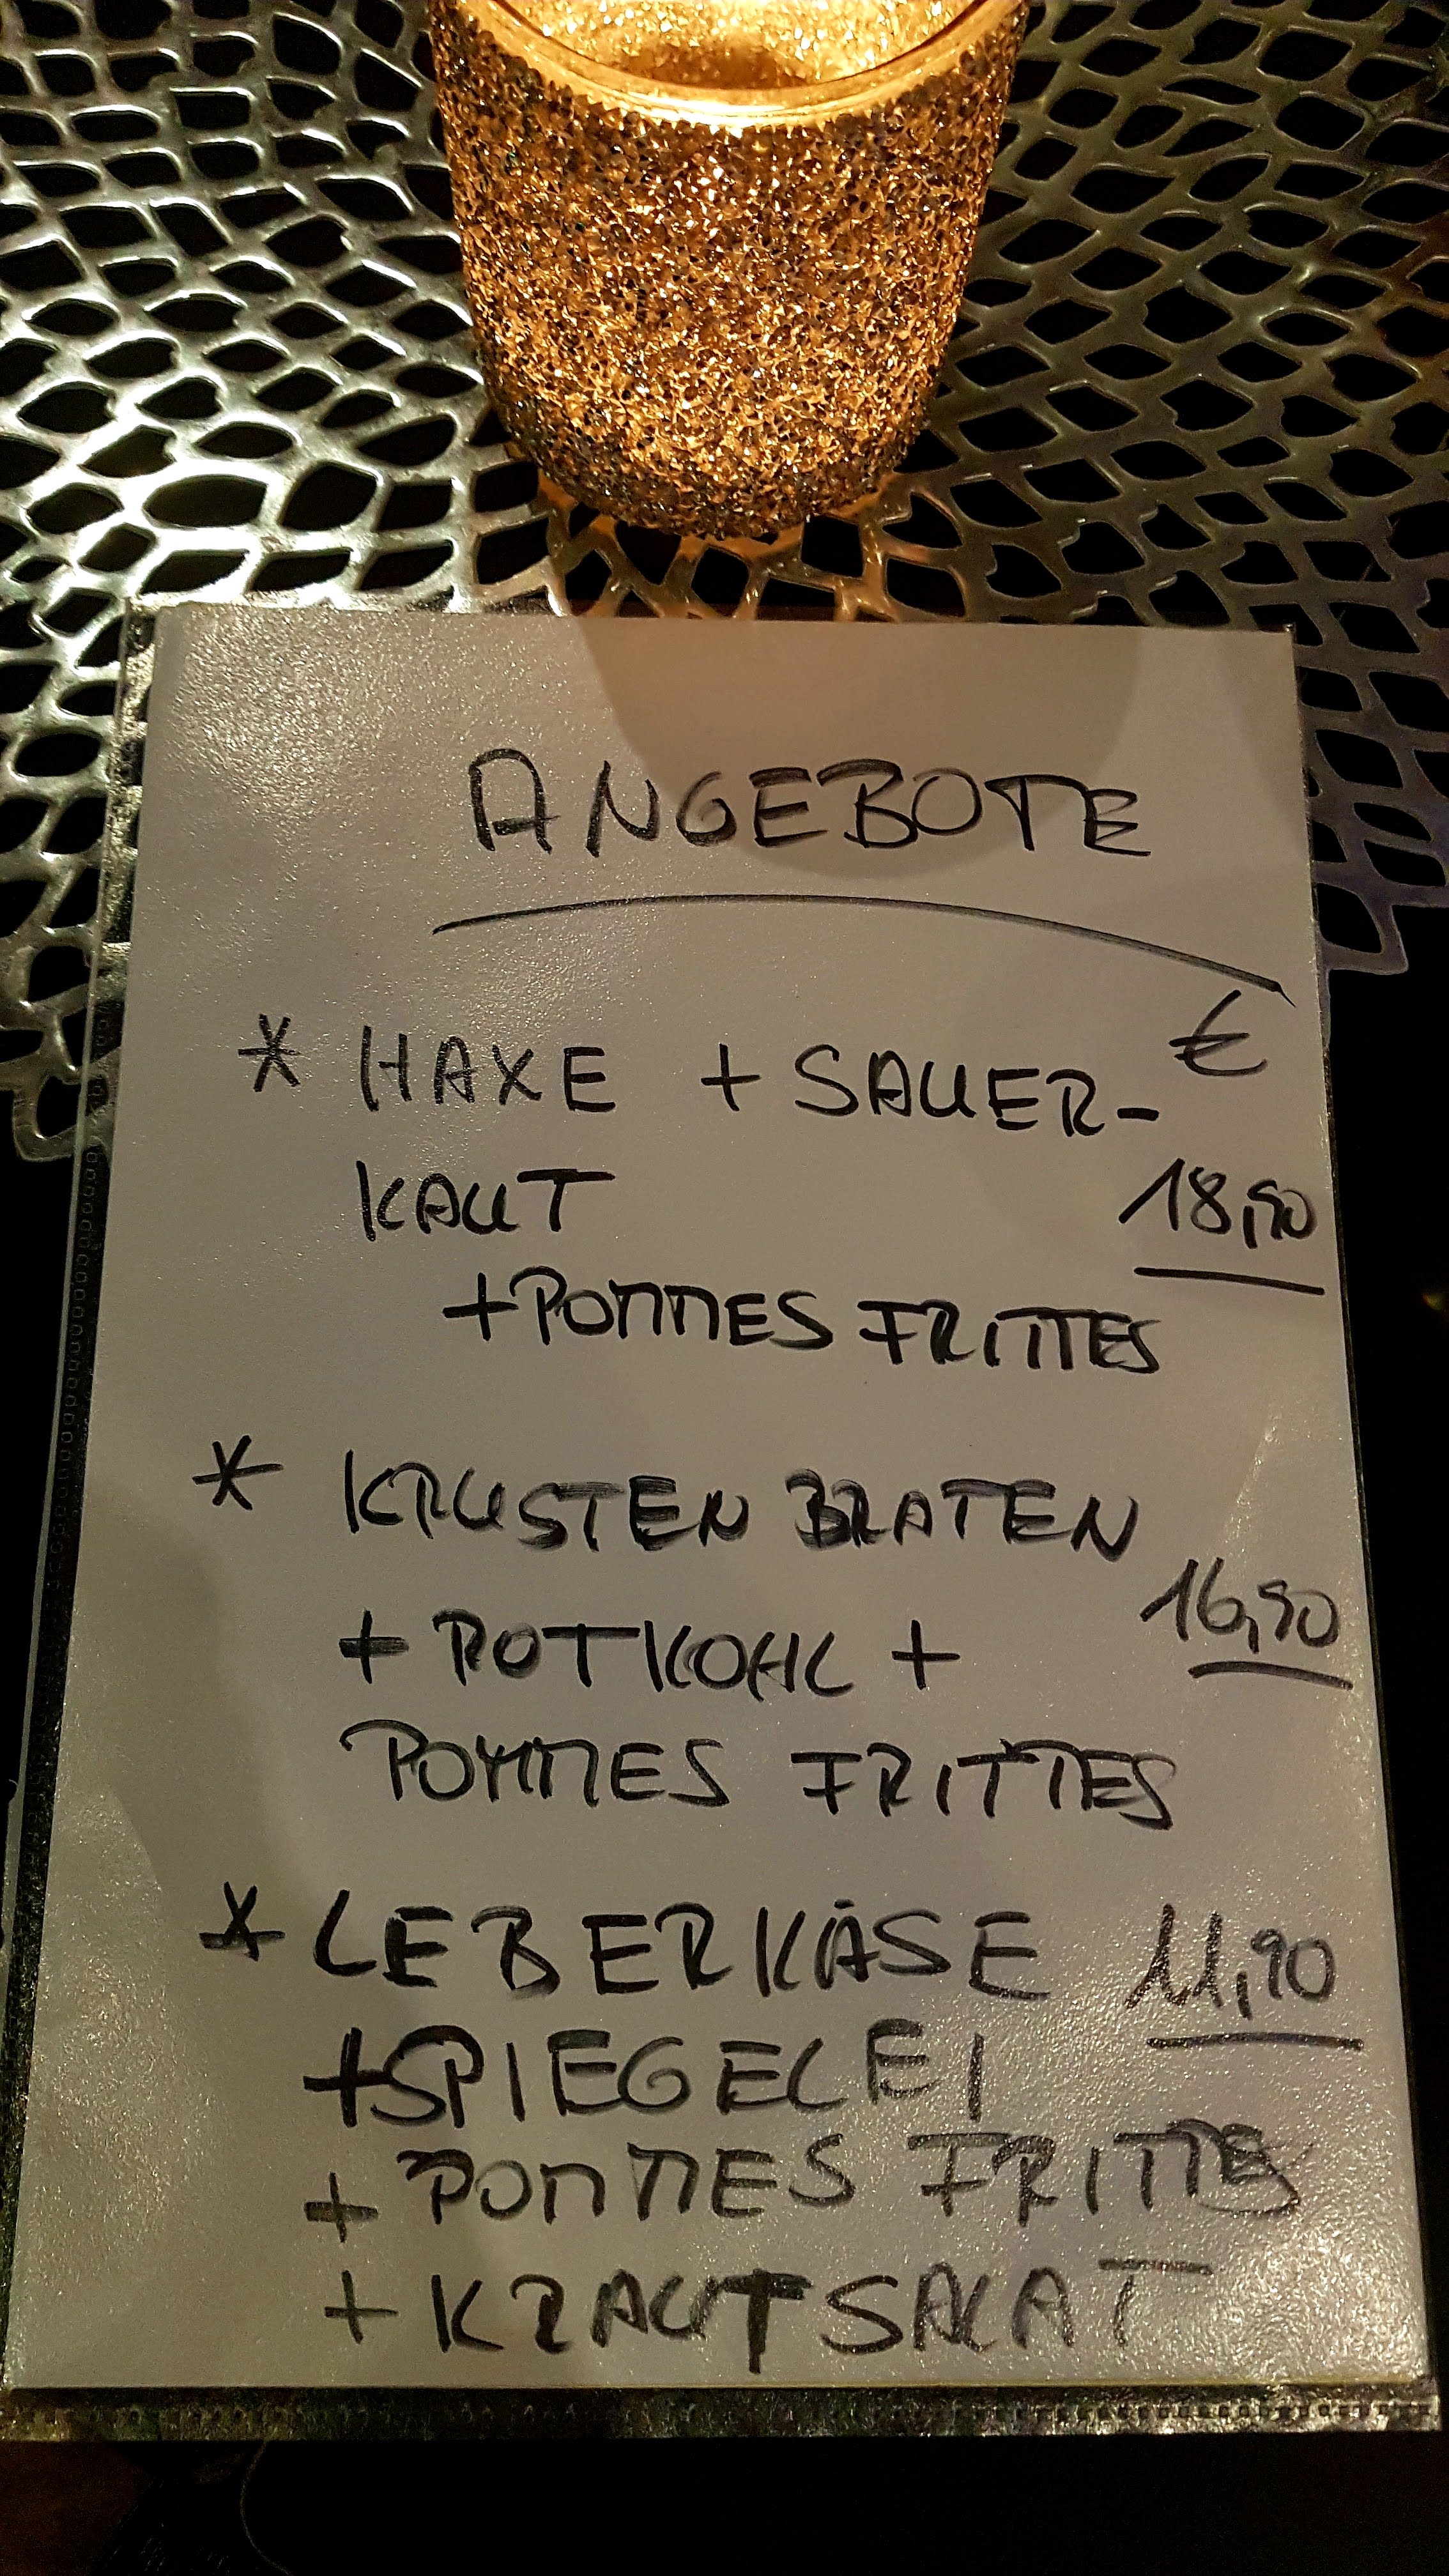 ANGEBOTE
€
* HAXE + SAUER-
KAUT 18,90
+ POMMES FRITTES
* KRUSTEN BRATEN
16,90
+ ROTKOHL +
POMMES FRITTES
* LEBERKÄSE 11,90
+ SPIEGELEI
+ POMMES FRITTES
+ KRAUTSALAT